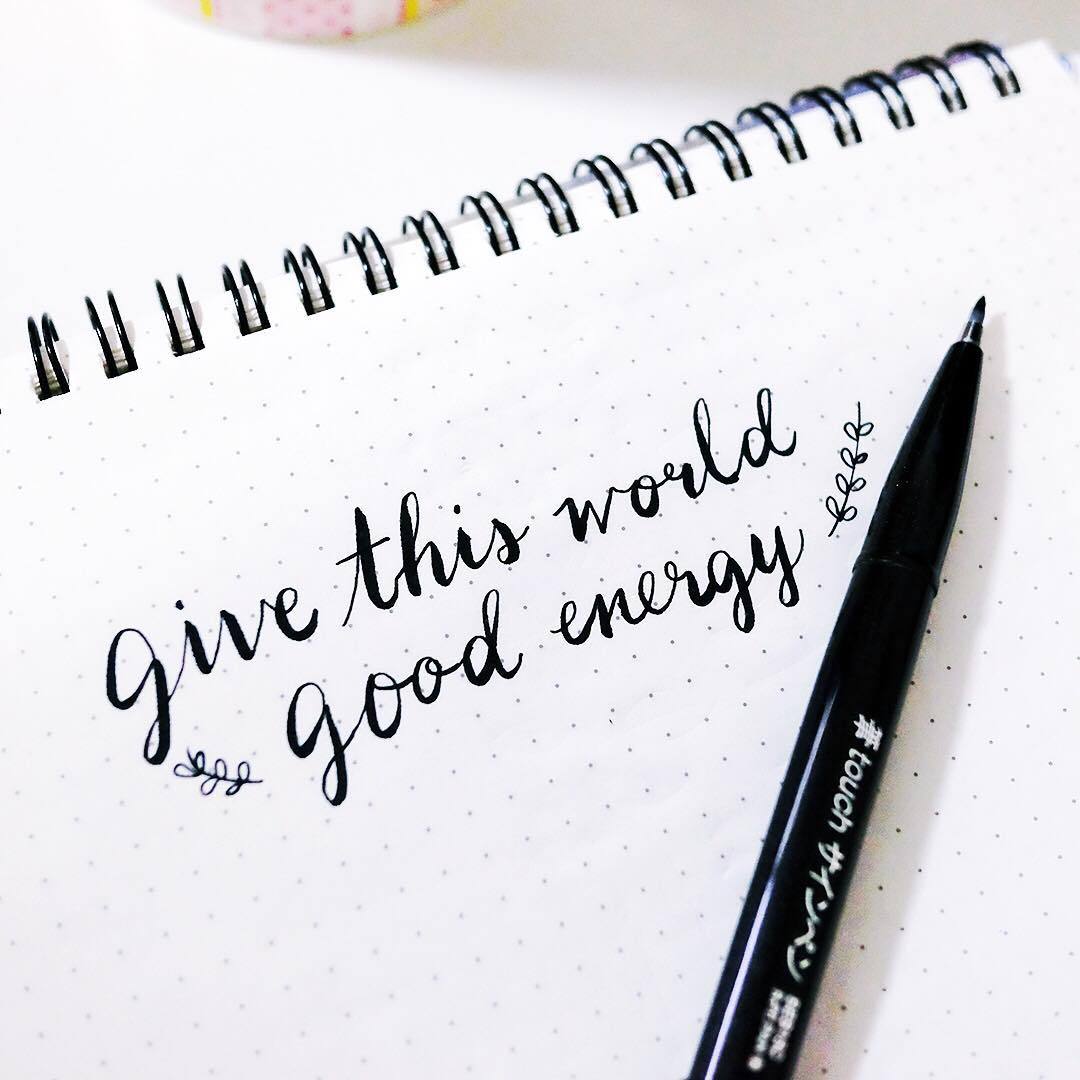 give this world
good energy
筆touch サインペン